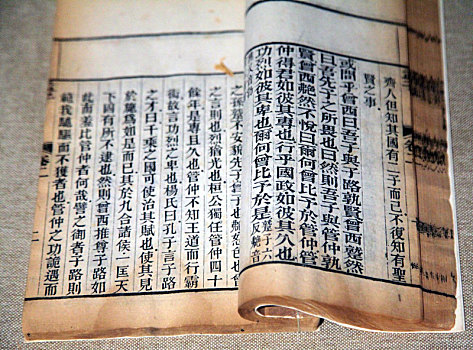 齊人但知其國有二子而已不復知有聖
賢之事
或問乎曾西曰吾子與子路孰賢曾西蹵然
曰吾先子之所畏也曰然則吾子與管仲孰
賢曾西艴然不悅曰爾何曾比予於管仲管
仲得君如彼其專也行乎國政如彼其久也
功烈如彼其卑也爾何曾比予於是蹵子六反艴音
之孫蹵不安貌先子曾子也艴怒色也曾
之言則也烈猶光也桓公獨任管仲四十
餘年是專且久也管仲不知王道而行霸
術故言功烈之卑也楊氏曰孔子言子路
之才曰千乘之國可使治其賦也使其見
於施爲如是而已其於九合諸侯一匡天
下固有所不逮也然則曾西推尊子路如
此而羞比管仲者何哉譬之御者子路則
範我馳驅而不獲者也管仲之功詭遇而
卷二
二